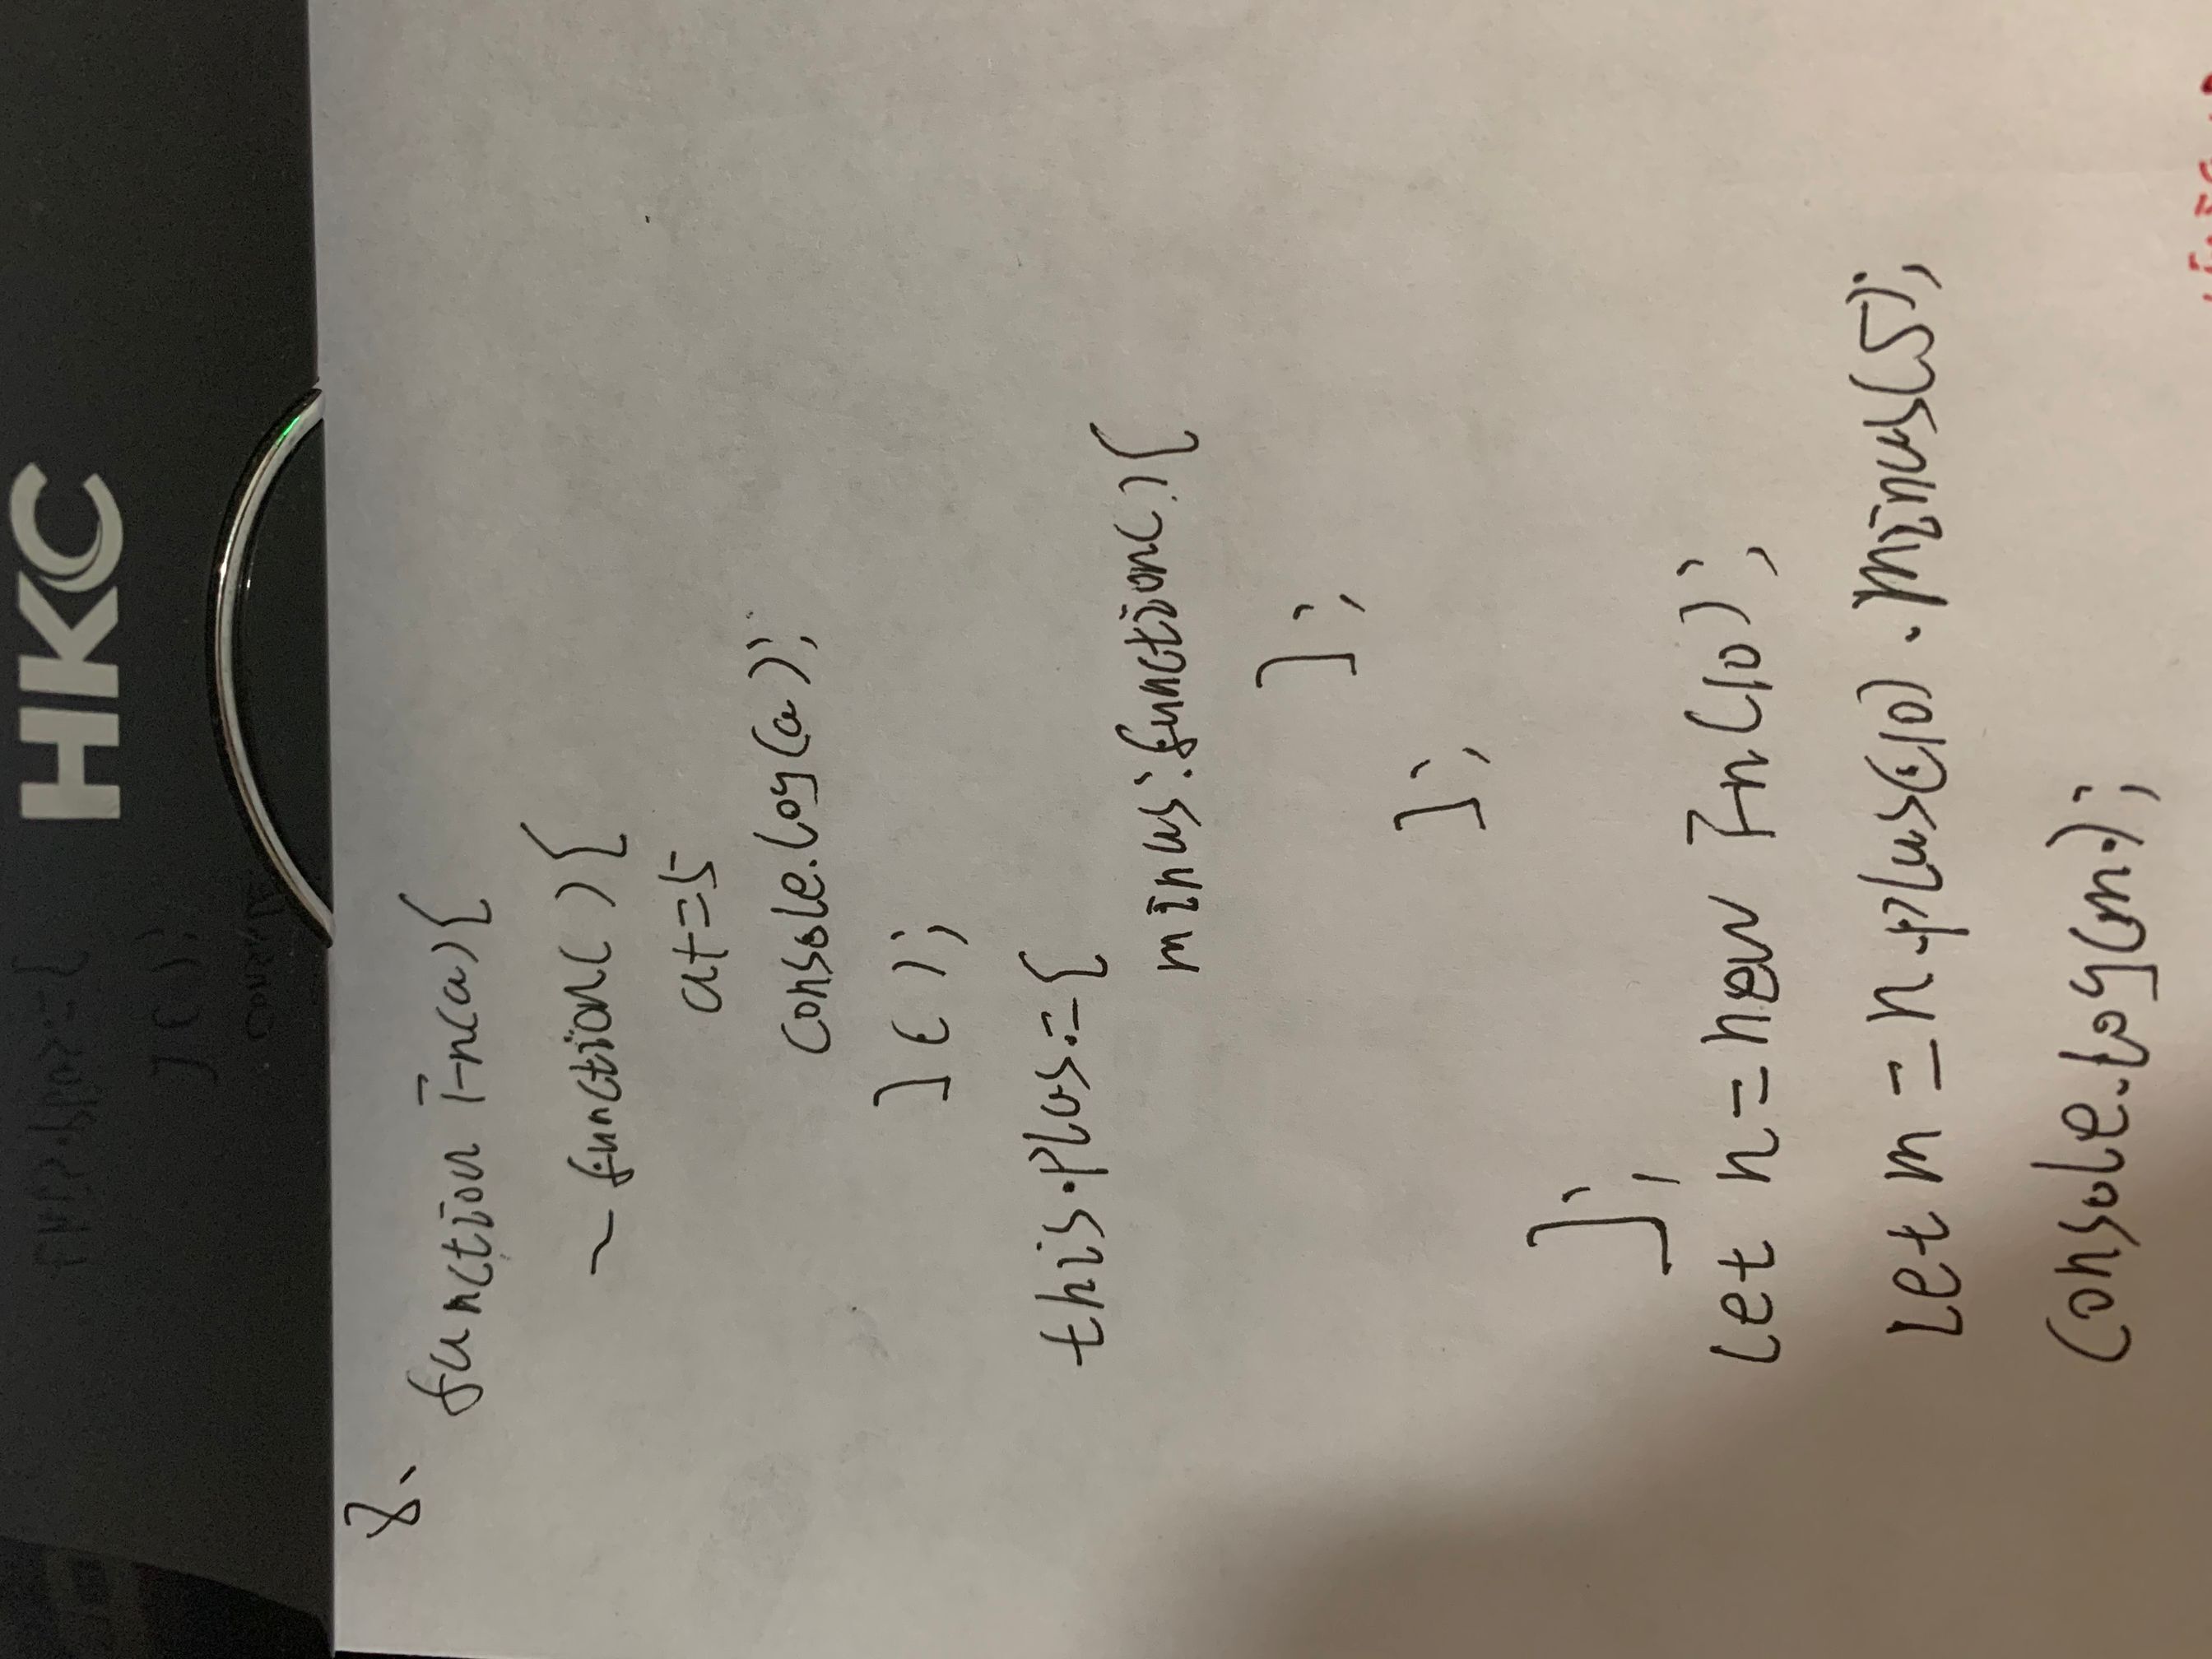 HKC
8、function Fn(a){
~function(){
a+=5
console.log(a);
}();
this.plus:={
minus:function(){
};
};
};
let n=new Fn(10);
let m=n.plus(10).minus(5);
console.log(m);